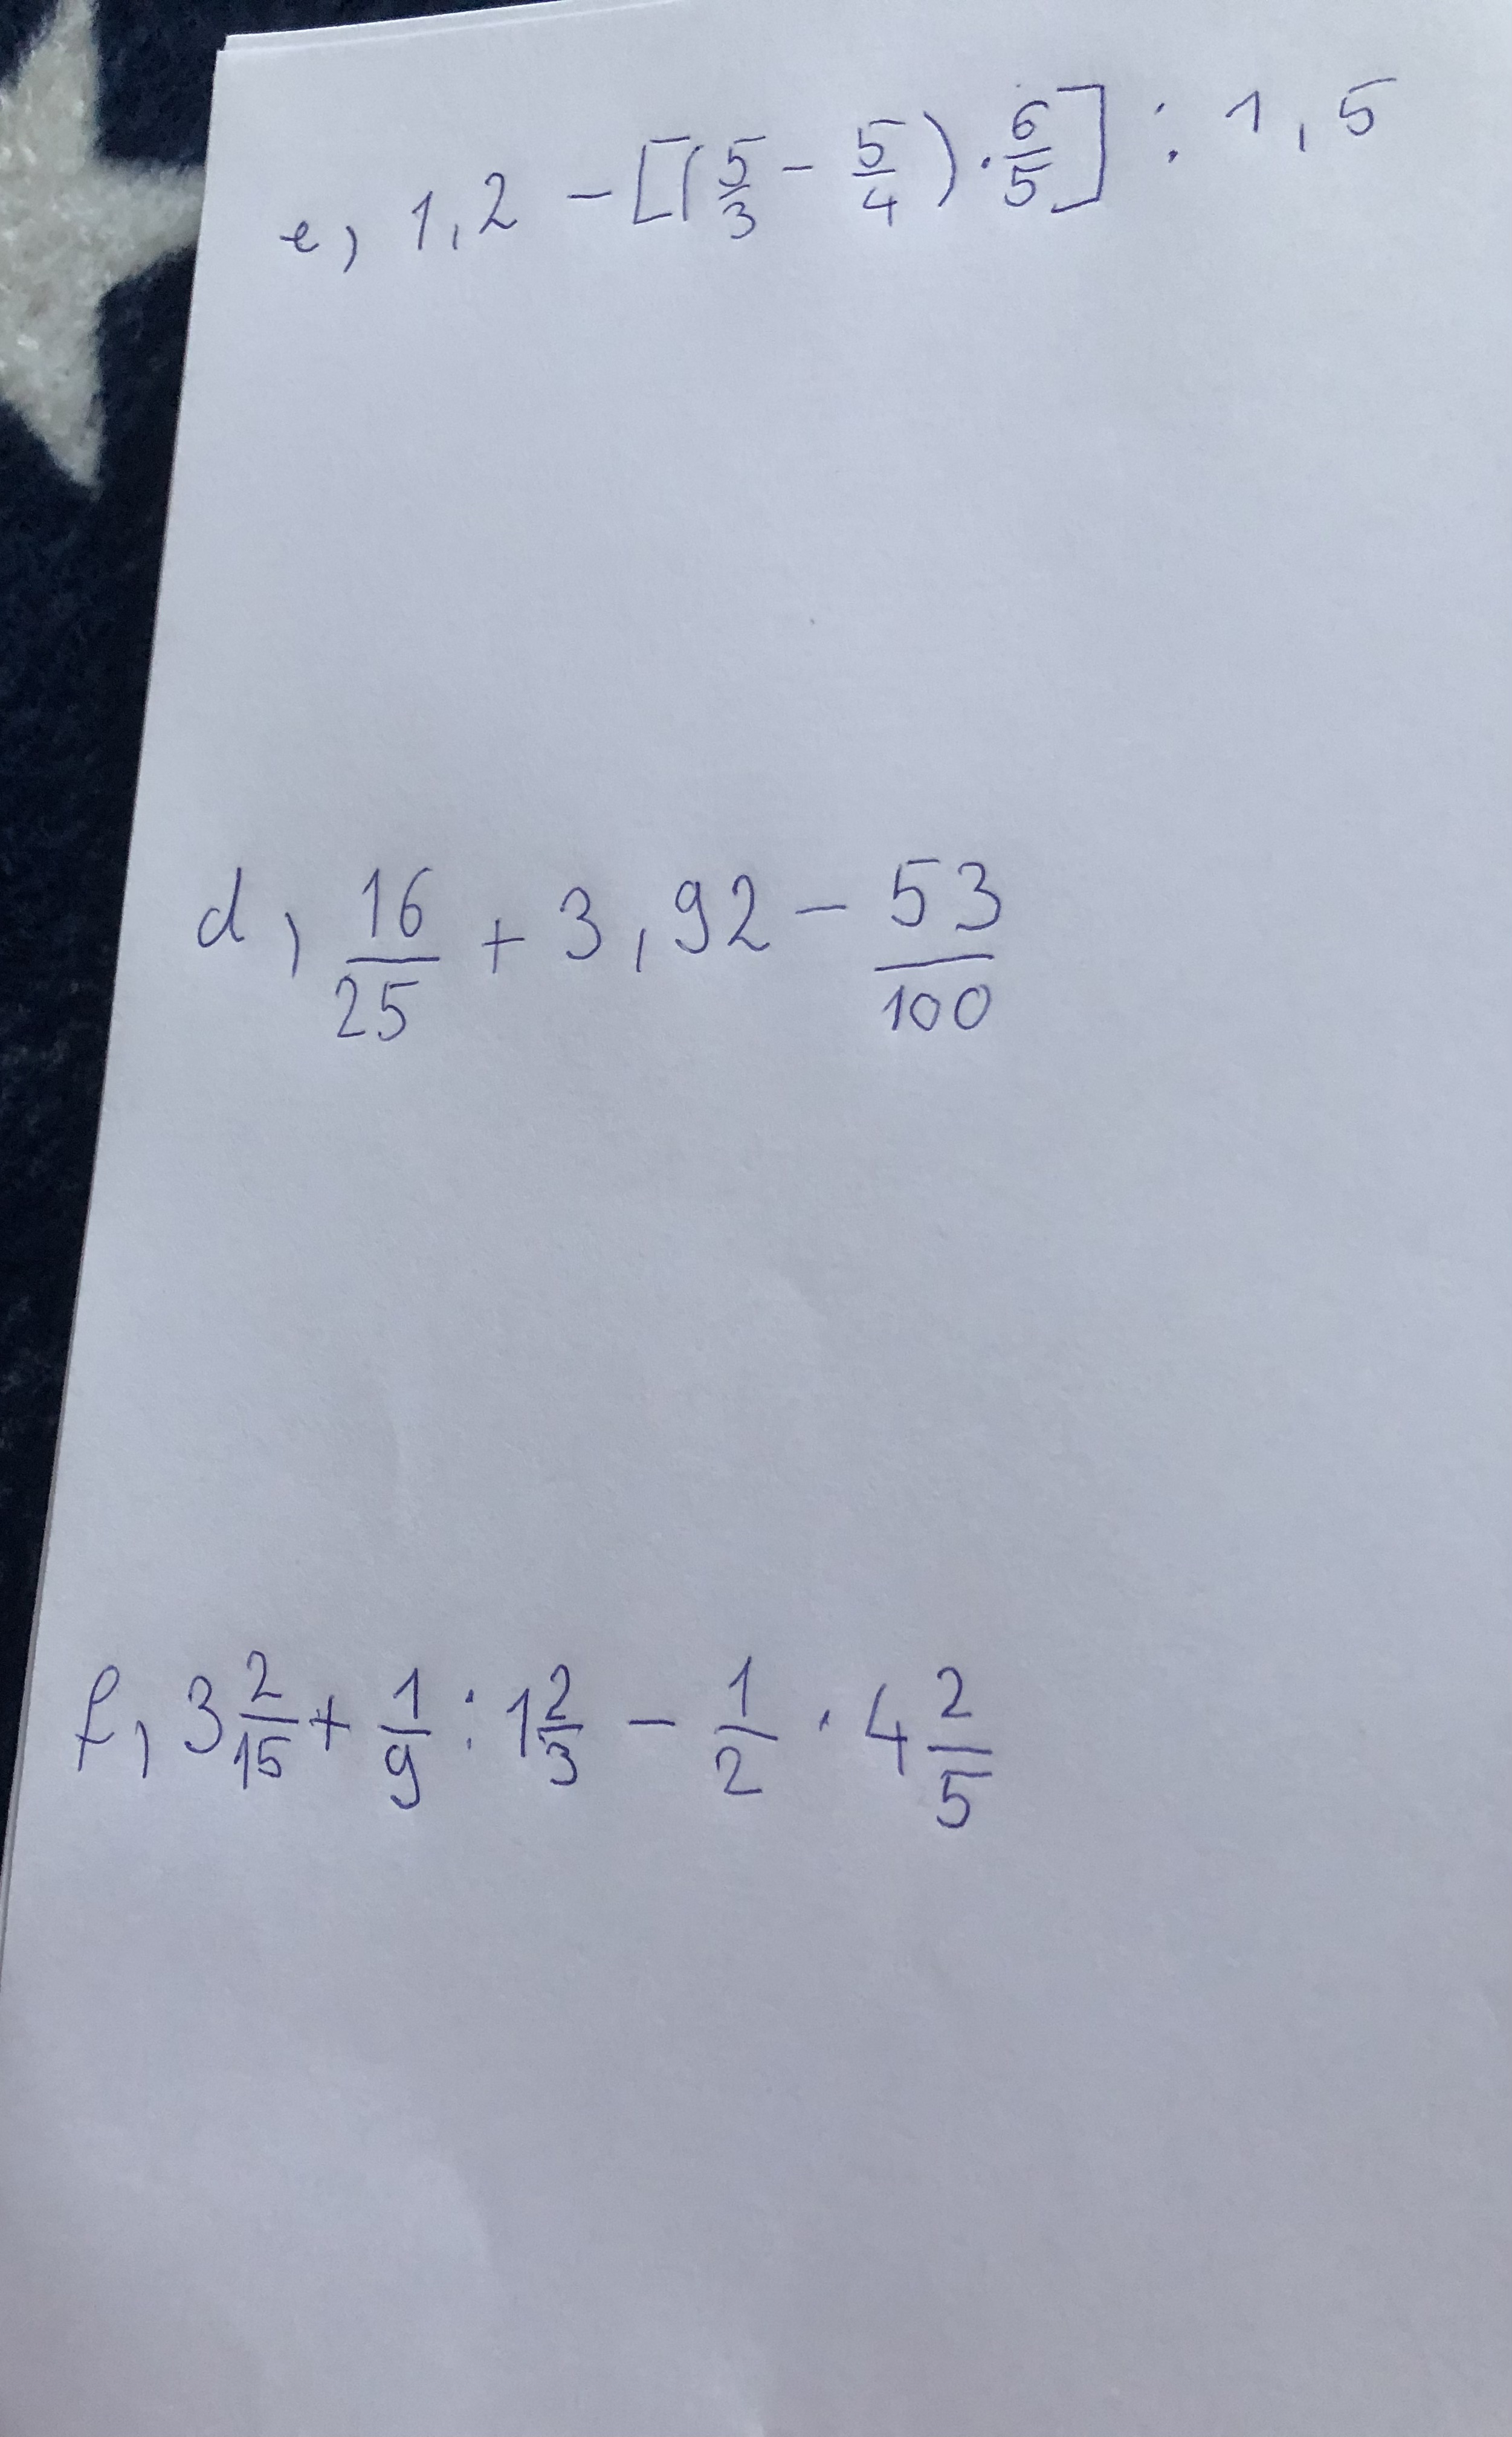 e, 1,2 - [(5/3 - 5/4) · 6/5] : 1,5
d, 16/25 + 3,92 - 53/100
f, 3 2/15 + 1/9 : 1 2/3 - 1/2 · 4 2/5